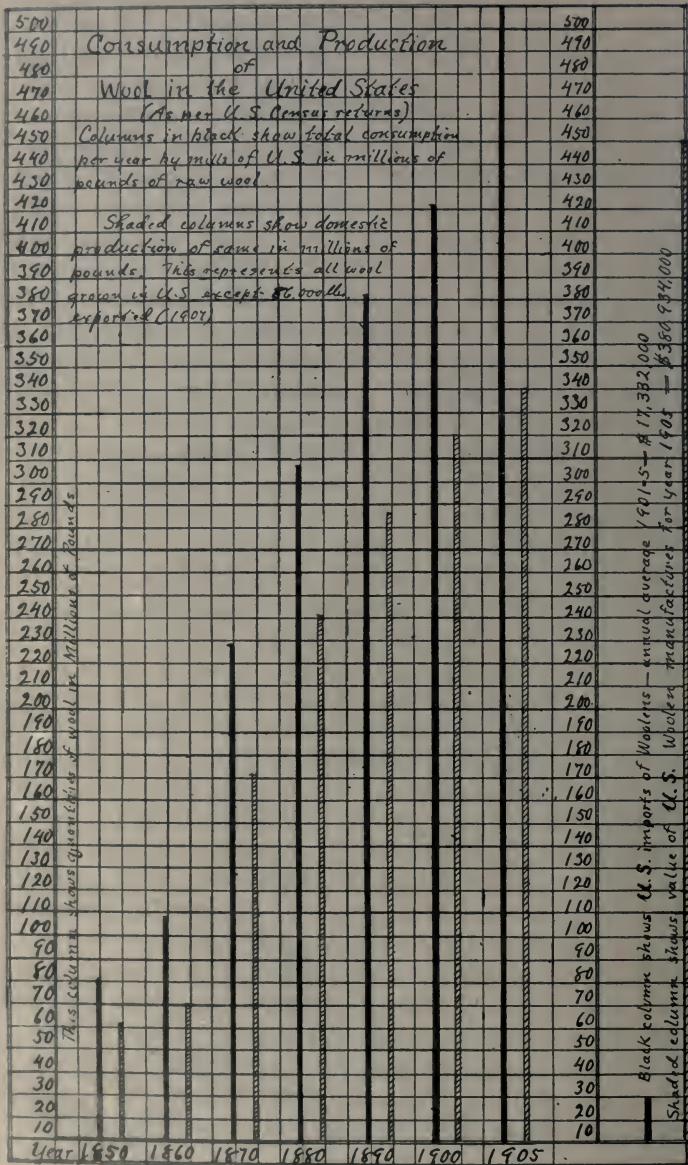 Consumption and Production
of
Wool in the United States
(As per U.S. Census returns)
Columns in black show total consumption
per year by mills of U.S. in millions of
pounds of raw wool
Shaded columns show domestic
production of same in millions of
pounds. This represents all wool
grown in U.S. except 86,000 lbs.
exported (1907)
500
490
480
470
460
450
440
430
420
410
400
390
380
370
360
350
340
330
320
310
300
290
280
270
260
250
240
230
220
210
200
190
180
170
160
150
140
130
120
110
100
90
80
70
60
50
40
30
20
10
This column shows quantities of wool in Millions of Pounds
500
490
480
470
460
450
440
430
420
410
400
390
380
370
360
350
340
330
320
310
300
290
280
270
260
250
240
230
220
210
200
190
180
170
160
150
140
130
120
110
100
90
80
70
60
50
40
30
20
10
Black column shows U.S. imports of Woolens — annual average 1901-5 — $17,332,000
Shaded column shows value of U.S. Woolen manufactures for year 1905 — $380,934,000
Year 1850 1860 1870 1880 1890 1900 1905